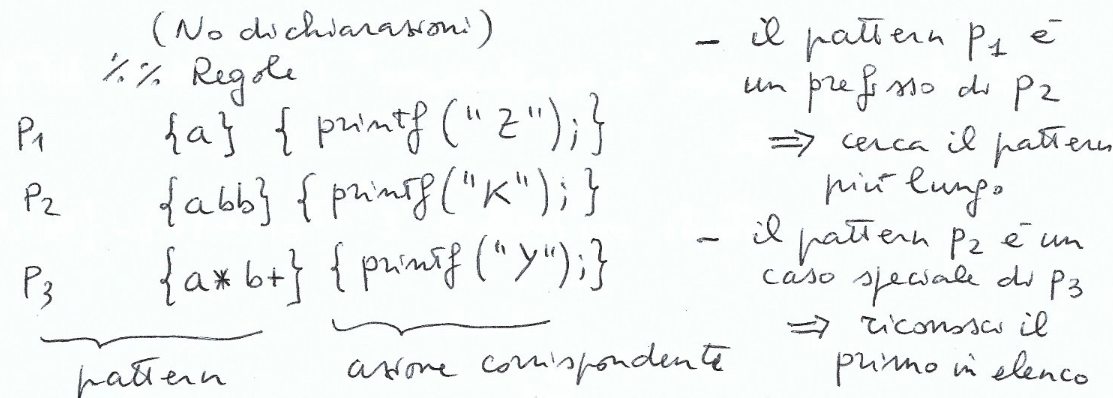 (No dichiarazioni)
%% Regole
P1 {a} { printf ("Z"); }
P2 {abb} { printf ("K"); }
P3 {a* b+} { printf ("Y"); }
pattern
azione corrispondente
- il pattern P1 è
un prefisso di P2
⇒ cerca il pattern
più lungo
- il pattern P2 è un
caso speciale di P3
⇒ riconosci il
primo in elenco